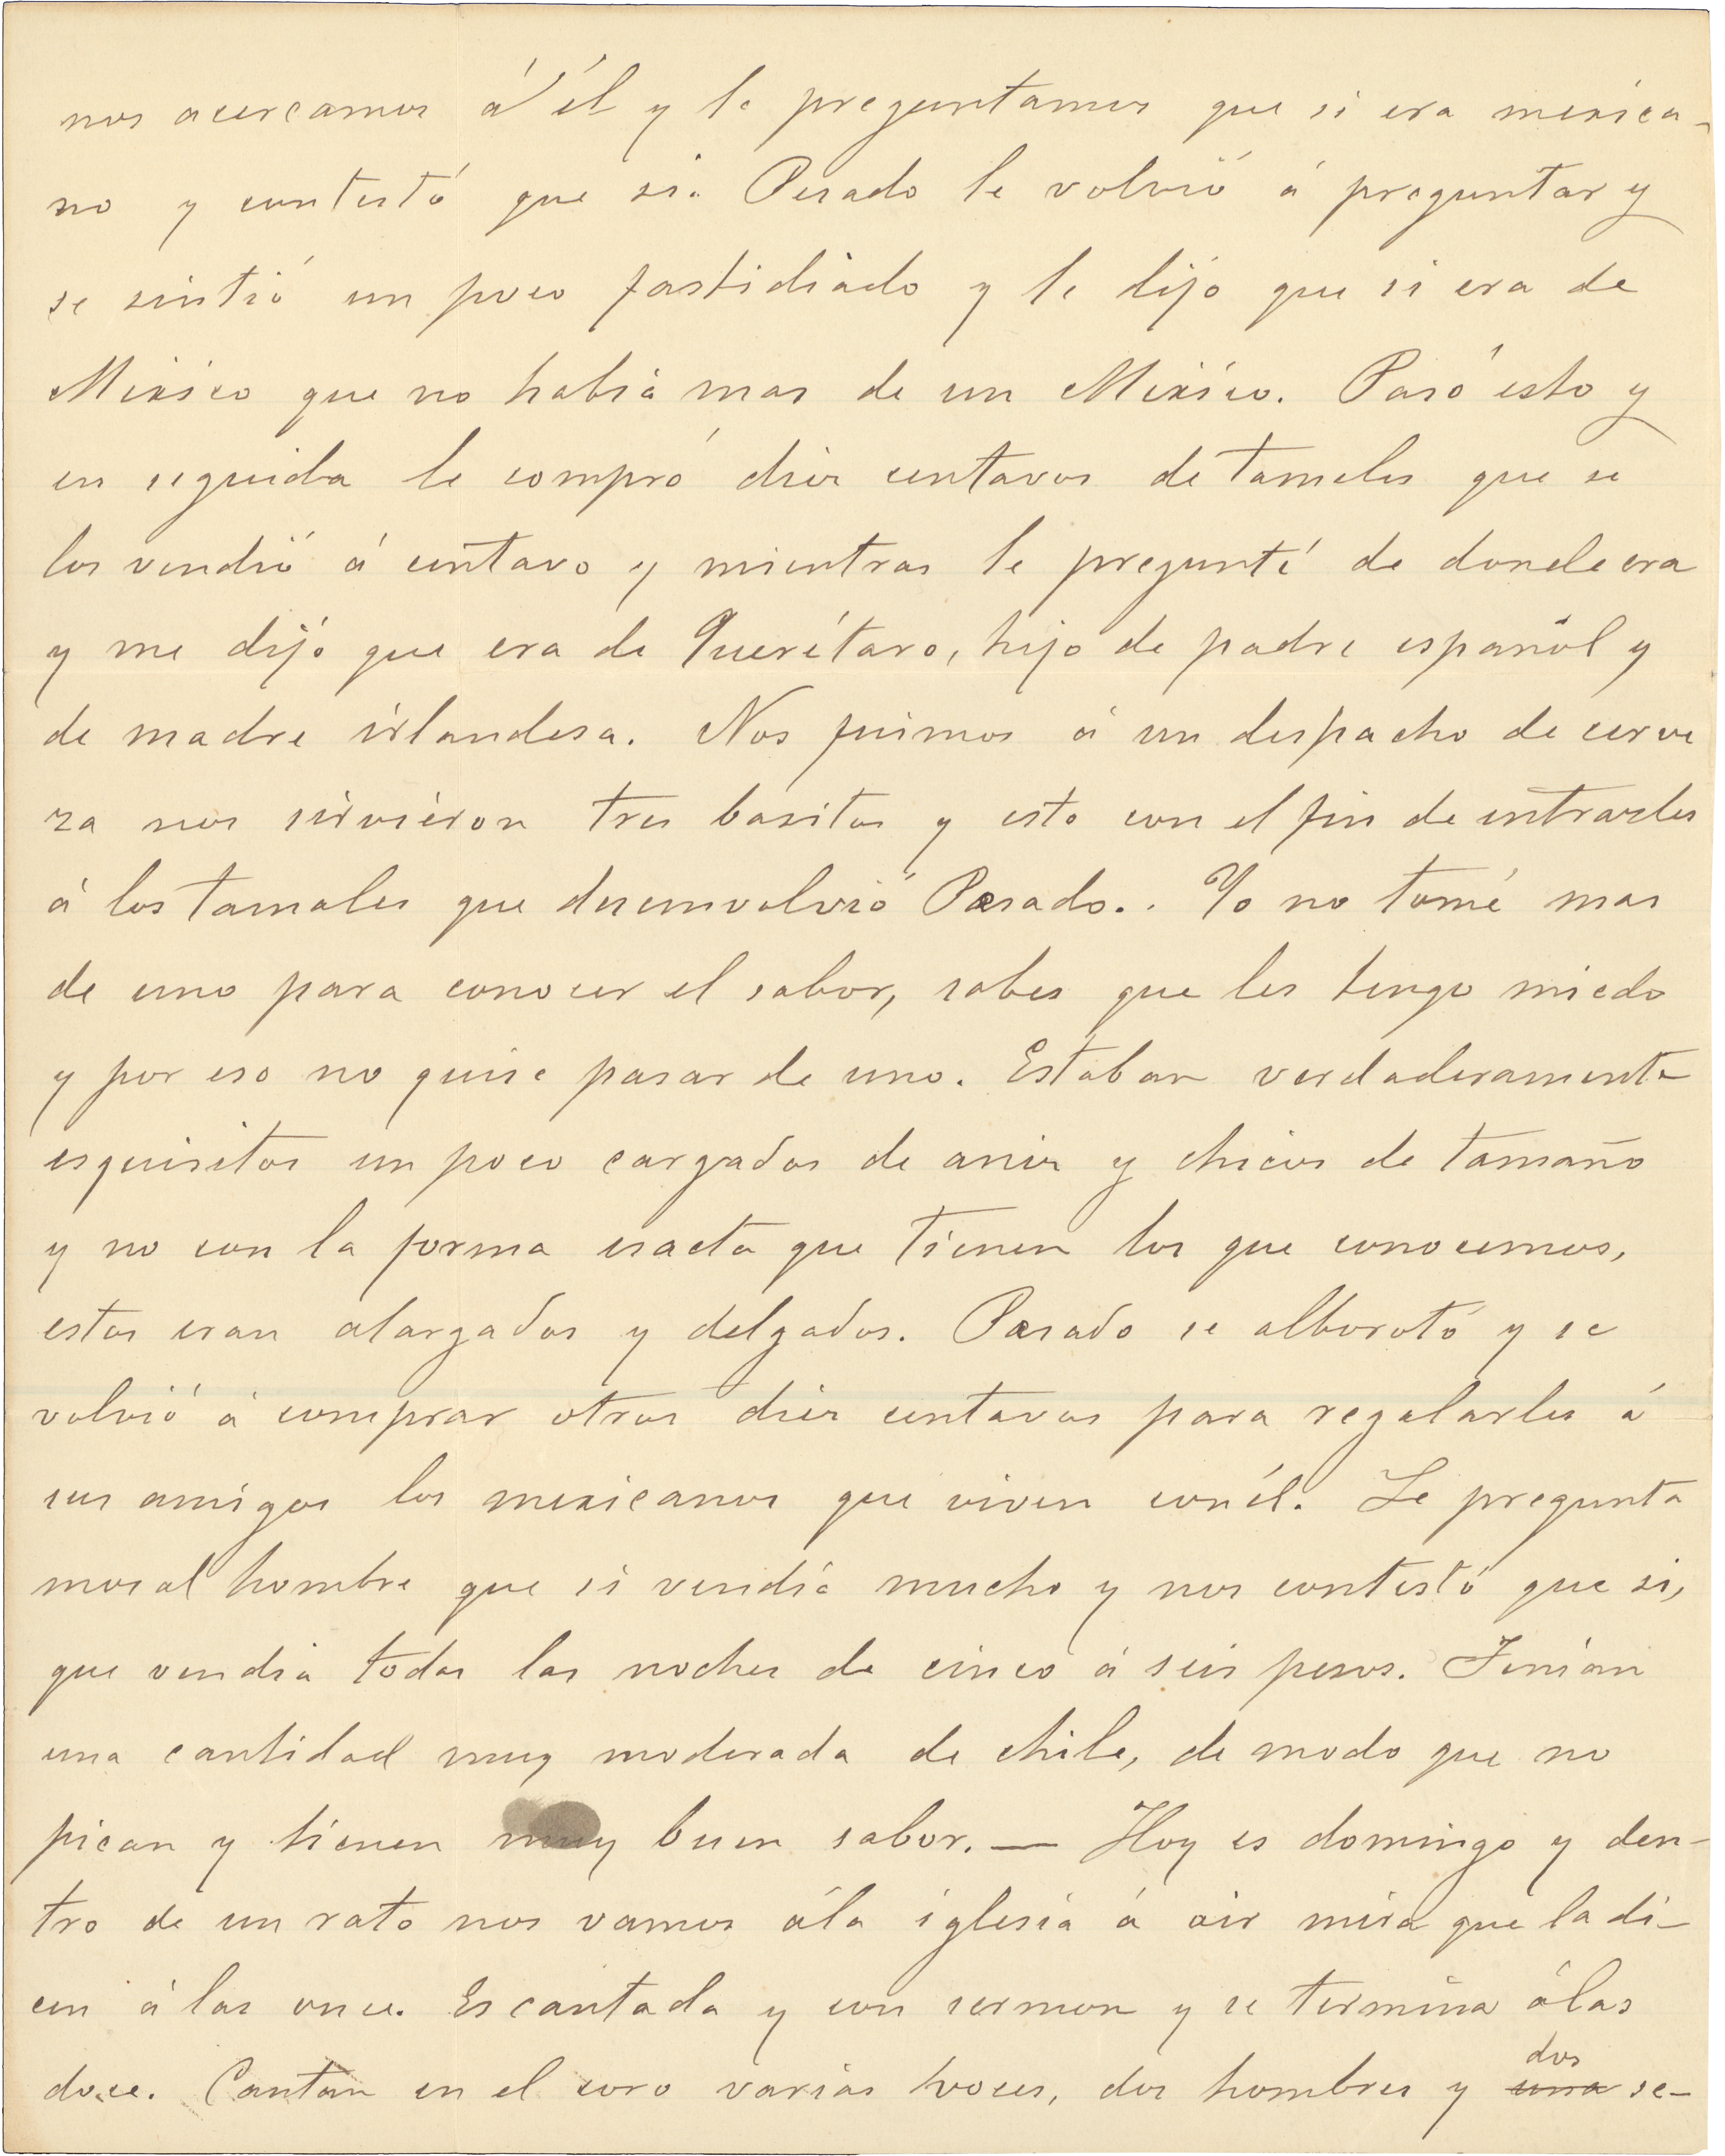 nos acercamos á él y le preguntamos que si era mexica-
no y contestó que si. Pesado le volvió á preguntar y
se sintió un poco fastidiado y le dijo que si era de
México que no habia mas de un México. Pasó esto y
en seguida le compró diez centavos de tamales que se
los vendió á centavo y mientras le pregunté de donde era
y me dijó que era de Querétaro, hijo de padre español y
de madre irlandesa. Nos fuimos á un despacho de cerve
za nos sirvieron tres basitos y esto con el fin de entrarles
á los tamales que desenvolvió Pesado.. Yo no tomé mas
de uno para conocer el sabor, sabes que les tengo miedo
y por eso no quise pasar de uno. Estaban verdaderamente
esquisitos un poco cargados de anis y chicos de tamaño
y no con la forma esacta que tienen los que conocemos,
estos eran alargados y delgados. Pesado se alborotó y se
volvió á comprar otros diez centavos para regalarles á
sus amigos los mexicanos que viven con él. Le pregunta
mos al hombre que si vendía mucho y nos contestó que si,
que vendia todas las noches de cinco á seis pesos. Tenían
una cantidad muy moderada de chile, de modo que no
pican y tienen muy buen sabor. — Hoy es domingo y den-
tro de un rato nos vamos á la iglesia á oir misa que la di-
cen á las once. Es cantada y con sermon y se termina á las
doce. Cantan en el coro varias voces, dos hombres y ~~una~~ dos se-